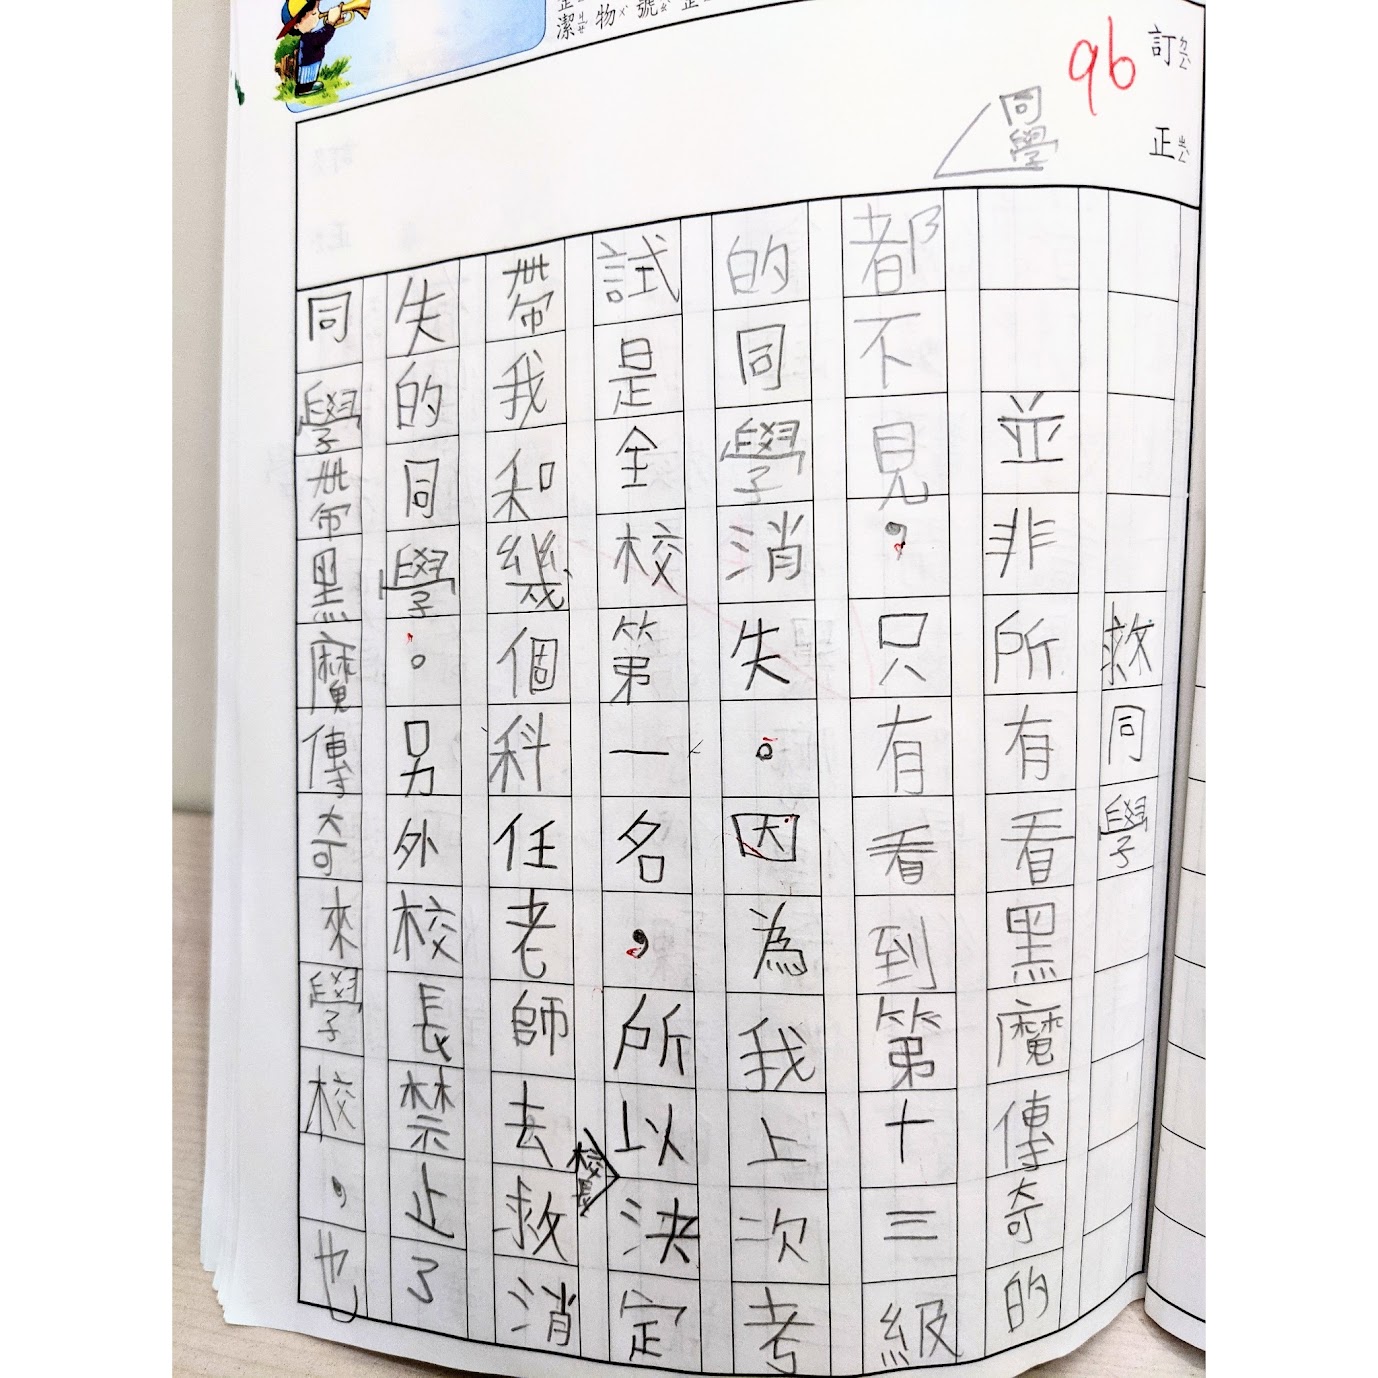 訂正
96
救同學
並非所有看黑魔傳奇的
同學
都不見，只有看到第十三級
的同學消失。因為我上次考
試是全校第一名，所以校長決定
帶我和幾個科任老師去救消
失的同學。另外校長禁止了
同學帶黑魔傳奇來學校，也